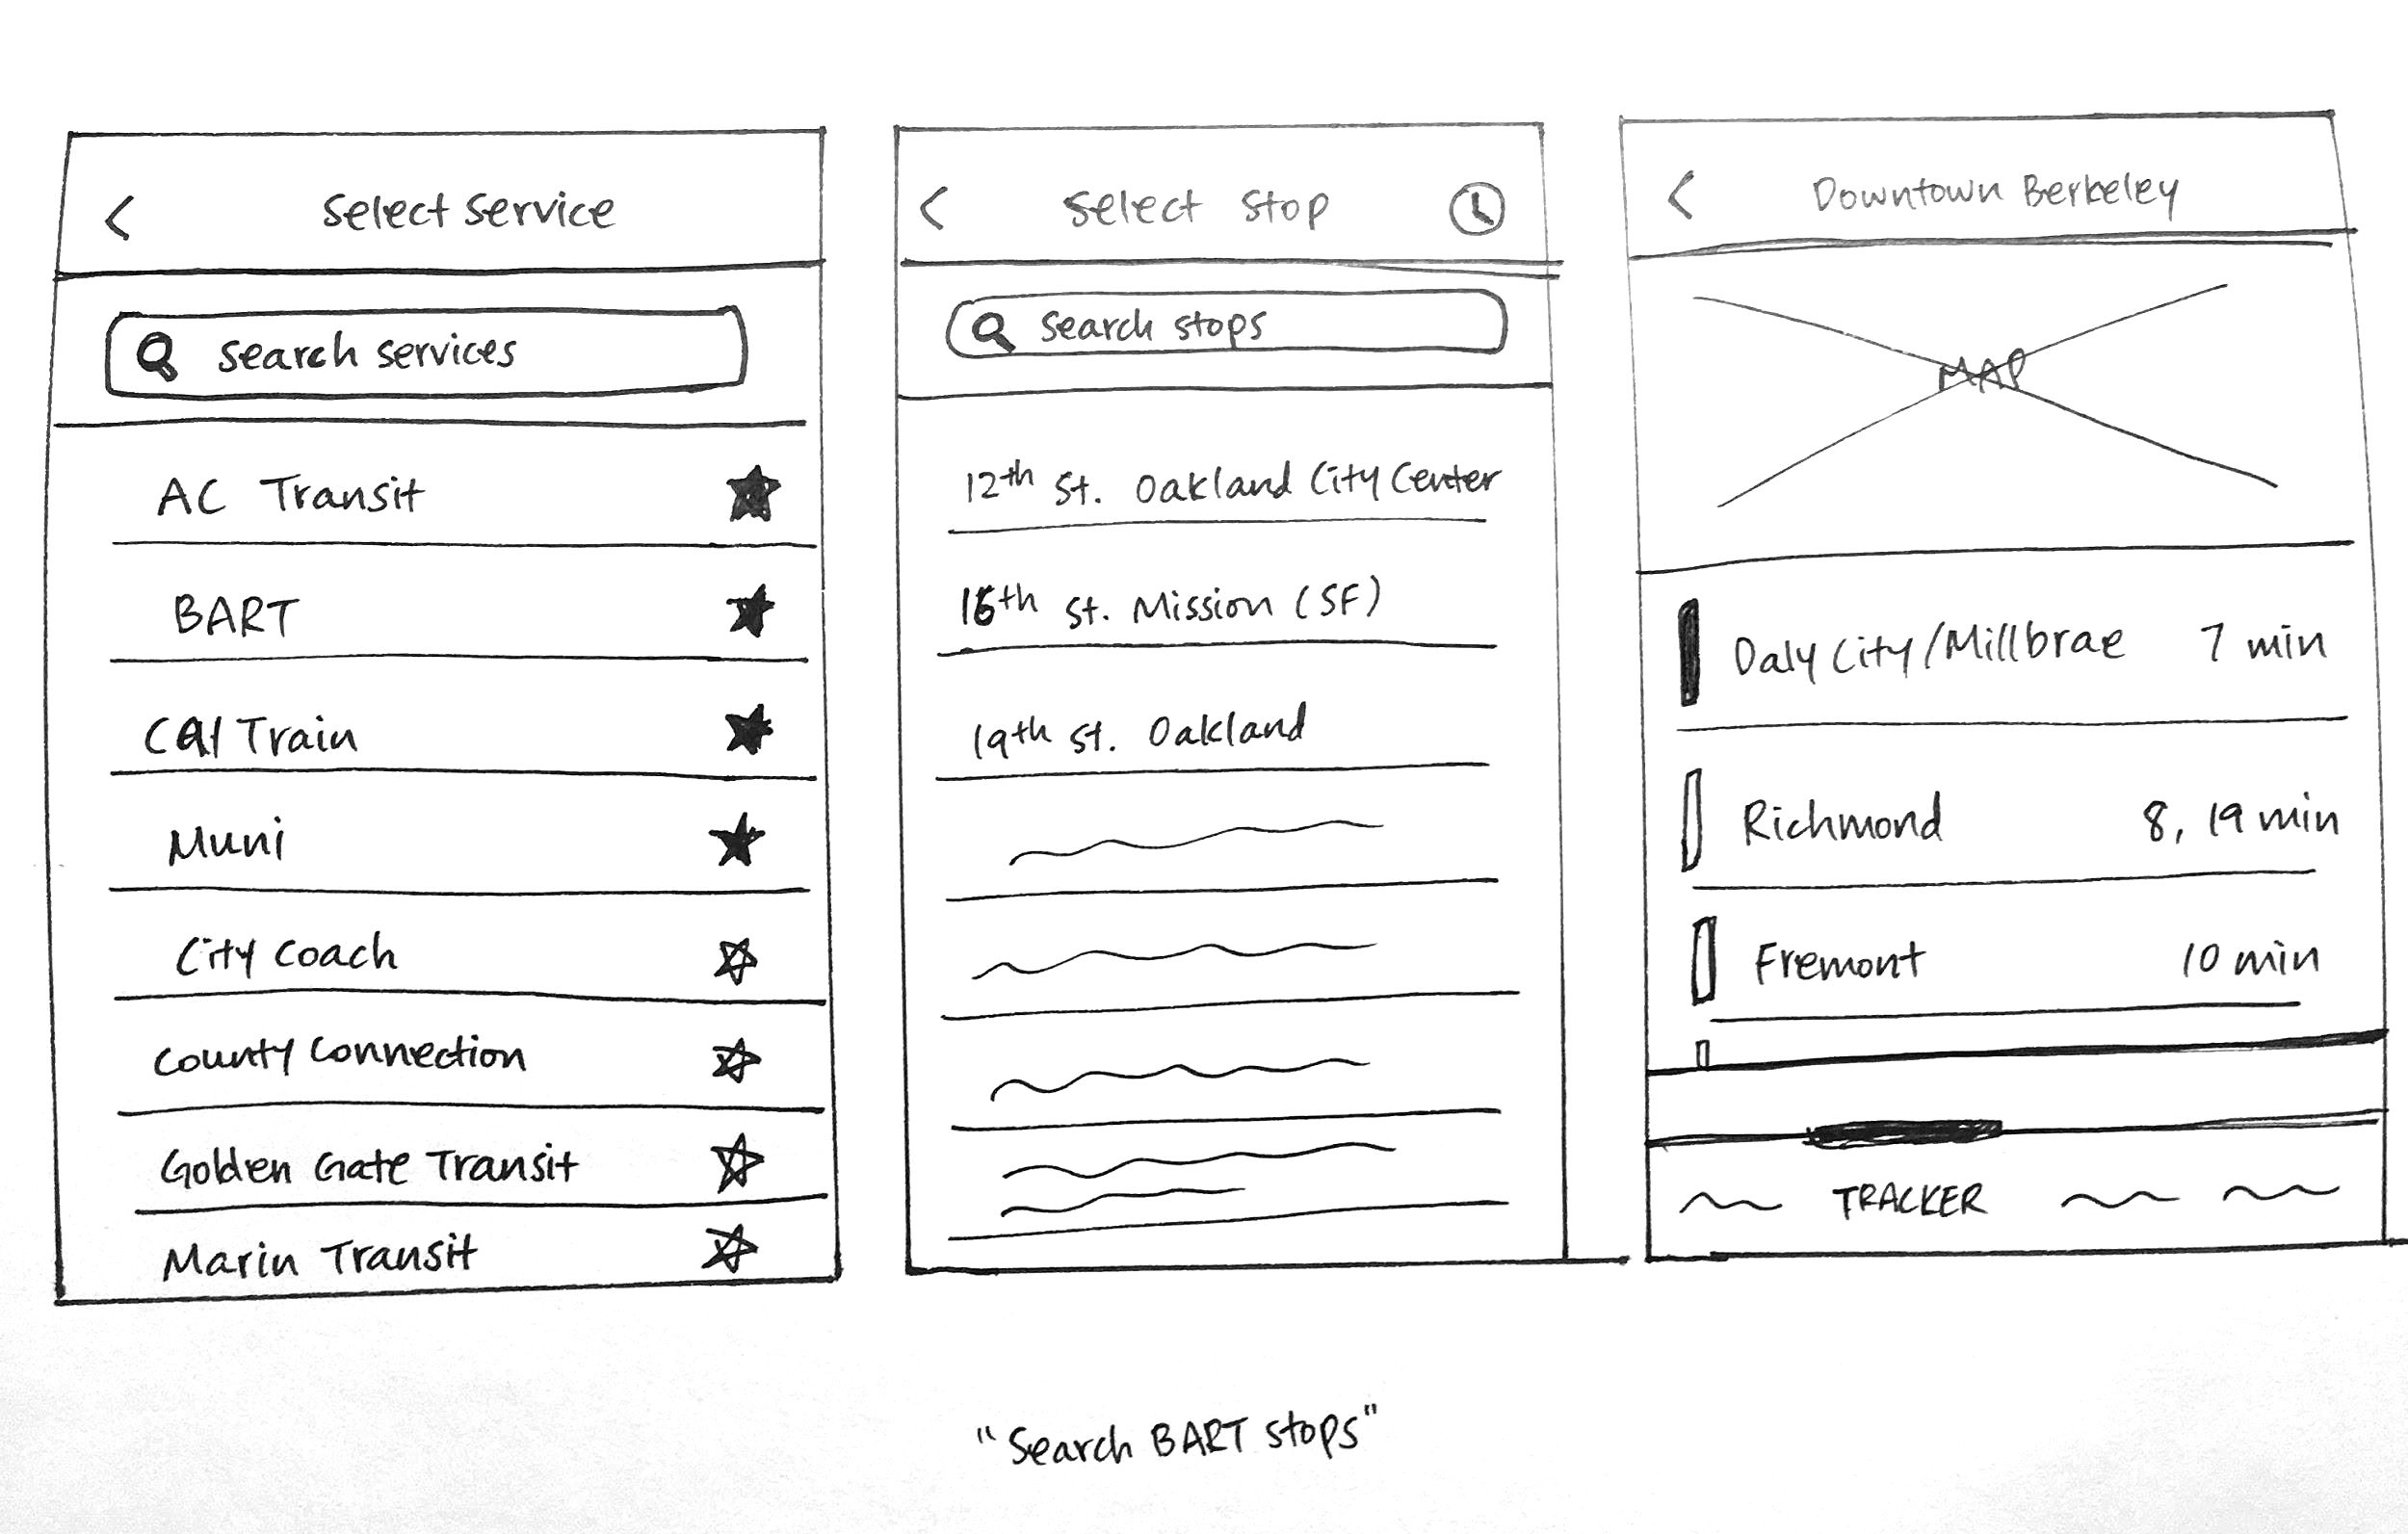 Select Service
Search services
AC Transit
BART
Cal Train
Muni
City Coach
County Connection
Golden Gate Transit
Marin Transit
Select Stop
Search stops
12th St. Oakland City Center
16th St. Mission (SF)
19th St. Oakland
Downtown Berkeley
MAP
Daly City/Millbrae 7 min
Richmond 8, 19 min
Fremont 10 min
TRACKER
"Search BART stops"